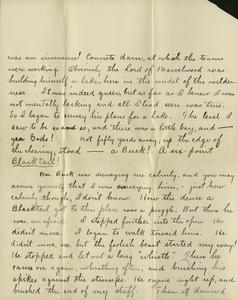 was an immense! Concrete dam, at which the teams
were working. Obviously the Lord of Marvelwood was
building himself a lake, here in the midst of the wilder-
ness. It was indeed queer but as far as I knew I was
not mentally lacking and all I had seen was true.
So I began to envy his plans for a lake. The level I
saw to be so and so, and there was a little bay, and —
yea Gods! Not fifty yards away, up the edge of
the clearing, stood — a Buck! A six point
Blacktail.
Mr Buck was surveying me calmly, and you may
assure yourself that I was surveying him, - just how
calmly though, I don't know. How the deuce a
Blacktail got to this place was a puzzle. But then he
was, unafraid. I stepped further into the open. He
didn't move. I began to walk toward him. He
didn't move, no, but the foolish beast started my way!
He stopped and let out a long "whistle" Then he
came on again, whistling often, and brushing his
spikes against the stumps. He came right up, and
brushed the end of my staff. Then it dawned